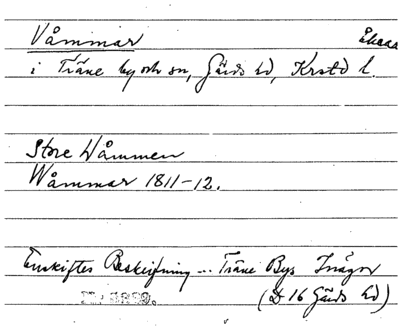 Våmmar
i Träne by och sn, Gärds hd, Krstd l.
Store Wåmmen
Wåmmar 1811-12.
Enskiftes Beskrifning … Träne Bys Inägor
(D 16 Gärds hd)